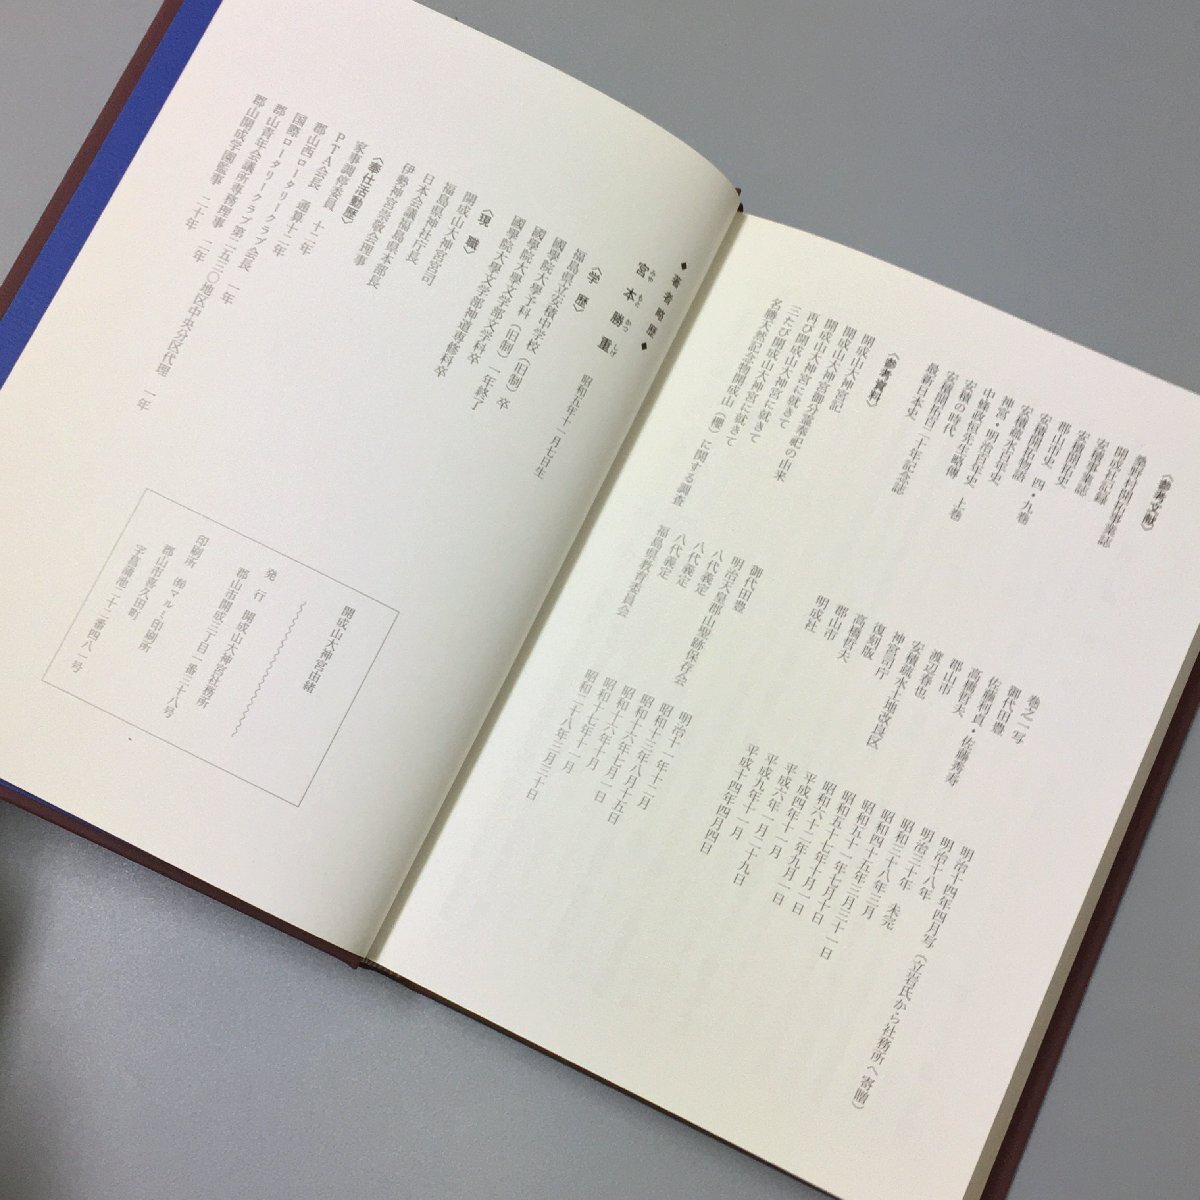 〈参考文献〉
桑野村開拓事業誌 巻之一写 明治十四年四月写(立岩氏から社務所へ寄贈)
開成社記録 御代田豊 明治十八年
安積事業誌 明治三十年
安積開拓史 高橋哲夫 昭和三十八年
郡山市史 四・九巻 郡山市
安積開拓物語 渡辺春也
安積疏水百年史 安積疏水土地改良区
神宮・明治百年史 神宮司庁
中條政恒先生略傳 復刻版
安積の時代 高橋哲夫
安積開拓百二十年記念誌 郡山市
最新日本史 明成社 平成十四年四月四日
〈参考資料〉
開成山大神宮記 御代田豊 明治十一年十二月
開成山大神宮御分霊奉祀の由来 明治天皇郡山聖跡保存会 昭和十三年八月十五日
開成山大神宮に就きて 八代義定 昭和十六年七月一日
再び開成山大神宮に就きて 八代義定 昭和十六年十月一日
三たび開成山大神宮に就きて 八代義定 昭和十七年十一月
名勝天然記念物開成山(櫻)に関する調査 福島県教育委員会 昭和二十八年三月三十日
◆著者略歴◆
宮本勝重 昭和五年十一月七日生
みやもとかつしげ
〈学歴〉
福島県立安積中学校(旧制)卒
國學院大學予科(旧制)一年終了
國學院大學文学部文学科卒
國學院大學文学部神道専修科卒
〈現職〉
開成山大神宮宮司
福島県神社庁長
日本会議福島県本部長
伊勢神宮崇敬会理事
〈奉仕活動歴〉
家事調停委員
PTA会長 通算十二年
郡山西ロータリークラブ会長 一年
国際ロータリークラブ第二五三〇地区中央分区代理 一年
郡山青年会議所専務理事 二年
郡山開成学園監事 二十年
開成山大神宮由緒
発行 開成山大神宮社務所
郡山市開成三丁目一番三十八号
印刷所 ㈲マルイ印刷所
郡山市喜久田町
字菖蒲池二十二番四八一号